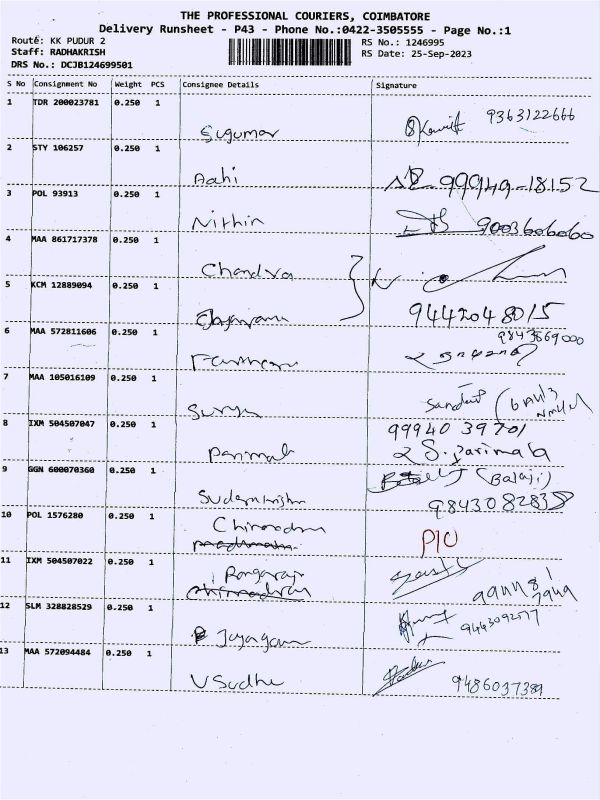 THE PROFESSIONAL COURIERS, COIMBATORE
Delivery Runsheet - P43 - Phone No.:0422-3505555 - Page No.:1
Route: KK PUDUR 2
RS No.: 1246995
Staff: RADHAKRISH
RS Date: 25-Sep-2023
DRS No.: DCJB124699501
S No Consignment No Weight PCS Consignee Details Signature
1 TDR 200023781 0.250 1 Sugumar 9363122666
2 STY 106257 0.250 1 Aahi 99949-18152
3 POL 93913 0.250 1 Nithin 9003606060
4 MAA 861717378 0.250 1 Chandra
5 KCM 12889094 0.250 1 9442048015
6 MAA 572811606 0.250 1 9843669000
7 MAA 105016109 0.250 1 Surya
8 IXM 504507047 0.250 1 Parimala 99940 39701
S. Parimala
9 GGN 600070360 0.250 1 (Balaji)
9843082838
10 POL 1576280 0.250 1
11 IXM 504507022 0.250 1 Rangaraj
12 SLM 328828529 0.250 1 Jayagam
13 MAA 572094484 0.250 1 V Sudha 9486037389